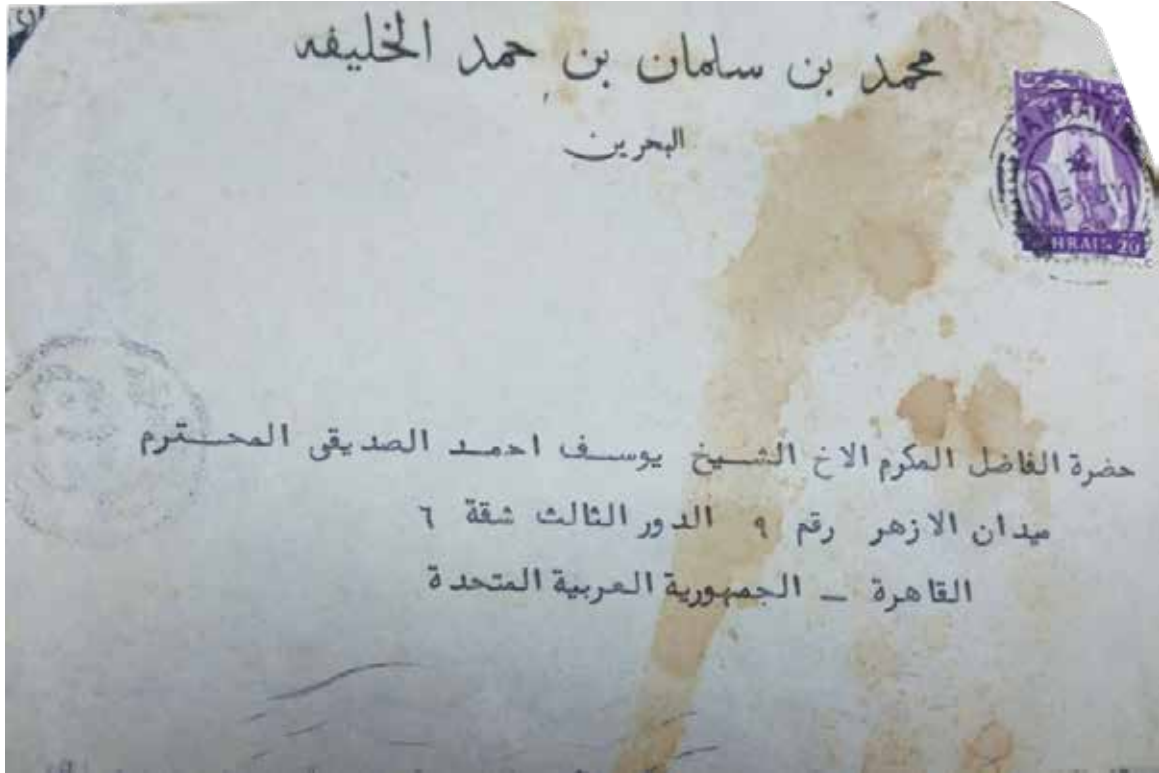 محمد بن سلمان بن حمد الخليفه
البحرين
BAHRAIN
حضرة الفاضل المكرم الاخ الشيخ يوسف احمد الصديقى المحترم
ميدان الازهر رقم ٩ الدور الثالث شقة ٦
القاهرة ــ الجمهورية العربية المتحدة